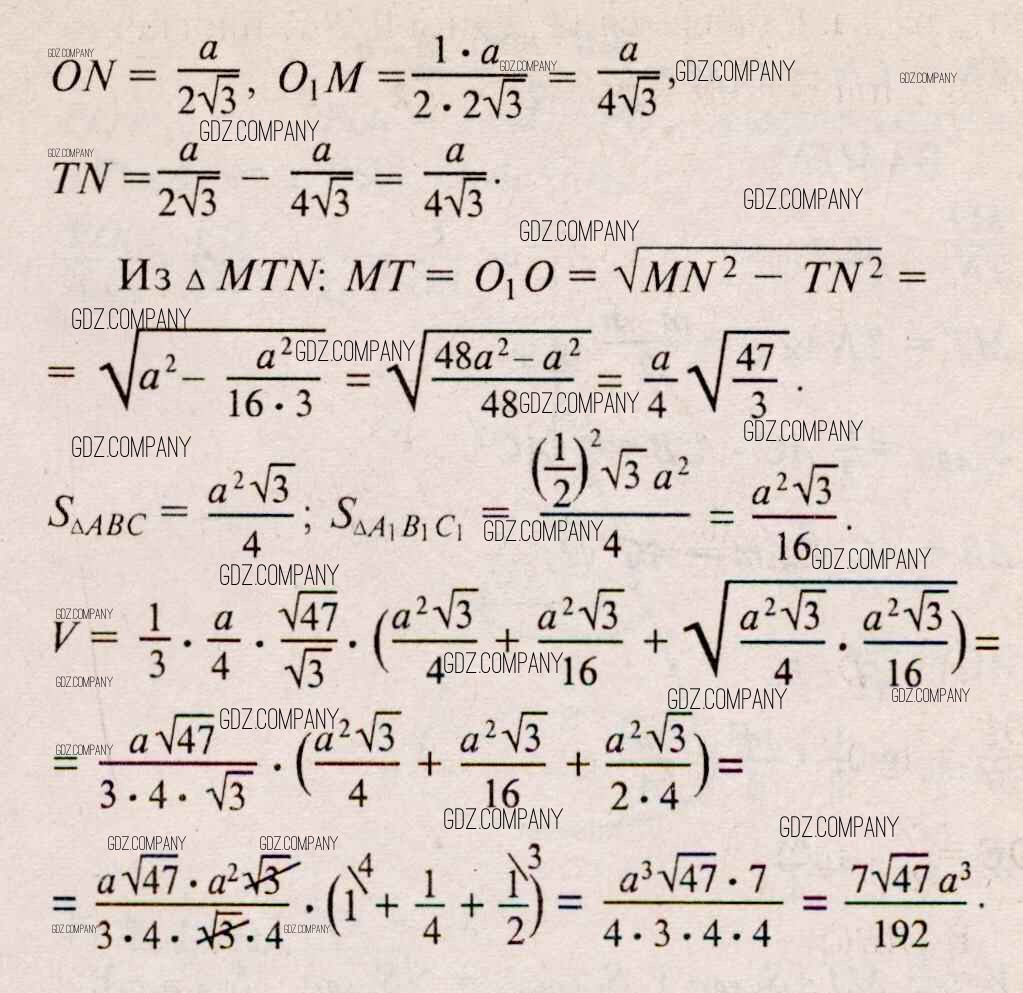 GDZ.COMPANY
ON = a/(2√3), O₁M = (1 · a)/(2 · 2√3) = a/(4√3), GDZ.COMPANY GDZ.COMPANY GDZ.COMPANY
GDZ.COMPANY
GDZ.COMPANY
TN = a/(2√3) − a/(4√3) = a/(4√3).
GDZ.COMPANY
GDZ.COMPANY
Из △ MTN: MT = O₁O = √(MN² − TN²) =
GDZ.COMPANY
= √(a² − a²/(16 · 3)) = √((48a² − a²)/48) = a/4 √(47/3). GDZ.COMPANY
GDZ.COMPANY
GDZ.COMPANY GDZ.COMPANY
S△ABC = a²√3/4; S△A₁B₁C₁ = ((1/2)² √3 a²)/4 = a²√3/16.
GDZ.COMPANY
GDZ.COMPANY
GDZ.COMPANY
GDZ.COMPANY
V = 1/3 · a/4 · √47/√3 · (a²√3/4 + a²√3/16 + √(a²√3/4 · a²√3/16)) =
GDZ.COMPANY
GDZ.COMPANY GDZ.COMPANY GDZ.COMPANY
GDZ.COMPANY
GDZ.COMPANY
= a√47/(3 · 4 · √3) · (a²√3/4 + a²√3/16 + a²√3/(2 · 4)) =
GDZ.COMPANY GDZ.COMPANY
GDZ.COMPANY GDZ.COMPANY
= (a√47 · a²√3)/(3 · 4 · √3 · 4) · (1\4 + 1/4 + 1\3/2) = (a³√47 · 7)/(4 · 3 · 4 · 4) = 7√47 a³/192.
GDZ.COMPANY GDZ.COMPANY